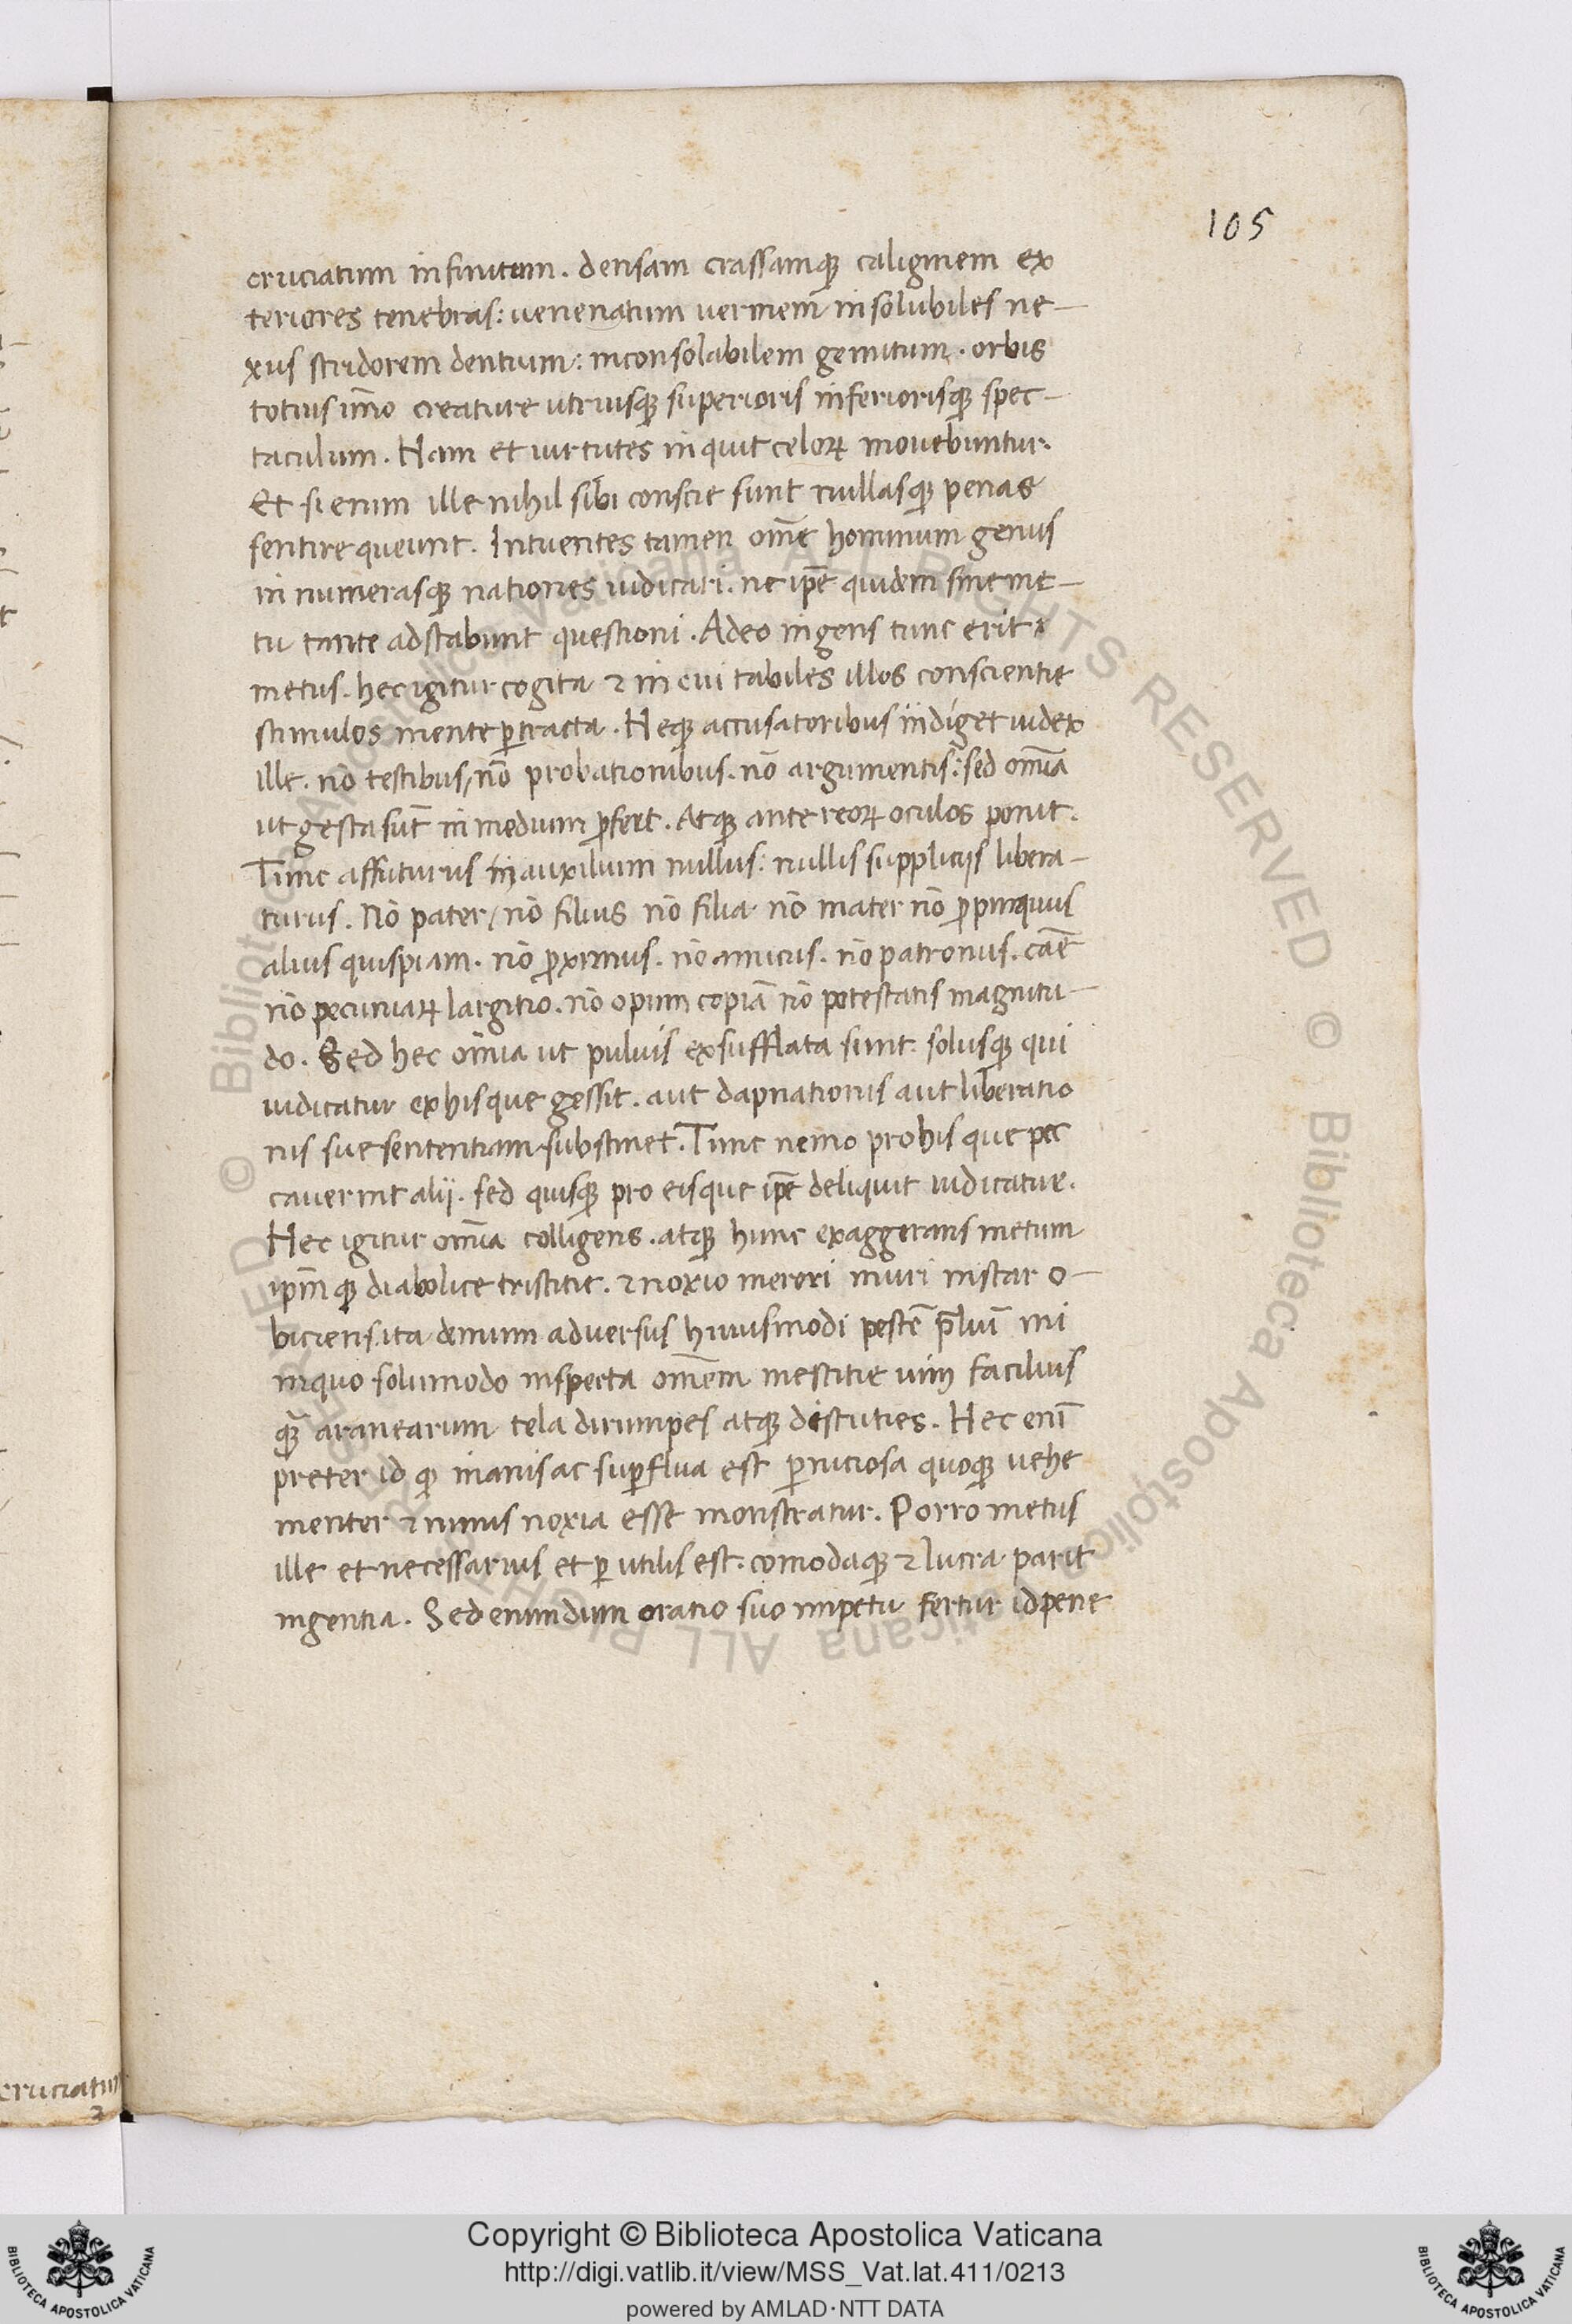 105
cruciatum infinitum. densam crassamq; caliginem ex
teriores tenebras: uenenatum uermem insolubiles ne-
xus stridorem dentium: inconsolabilem gemitum. orbis
totius im̄o creature utriusq; superioris inferiorisq; spec-
taculum. Nam et uirtutes inquit celoꝝ mouebuntur.
Et si enim ille nihil sibi conscie sunt nullasq; penas
sentire queunt. Intuentes tamen om̄e hominum genus
innumerasq; nationes iudicari. ne ip̄e quidem sine me-
tu tante adstabunt questioni. Adeo ingens tunc erit
metus. hec igitur cogita ⁊ in eui tabiles illos conscientie
stimulos mente ꝑtracta. Neq; accusatoribus indiget iudex
ille. nō testibus, nō probationibus. nō argumentis: sed om̄ia
ut gesta sūt in medium ꝓfert. Atq; ante reoꝝ oculos ponit.
Tunc affuturus in auxilium nullus: nullis suppliciis libera-
turus. Nō pater, nō filius nō filia. nō mater nō ꝓpinquus
alius quispiam. nō ꝓximus. nō amicus. nō patronus. caē
nō pecuniaꝝ largitio. nō opum copiā nō potestatis magnitu-
do. Sed hec om̄ia ut puluis exsufflata sunt. solusq; qui
iudicatur ex his que gessit. aut dapnationis aut liberatio
nis sue sententiam substinet. Tunc nemo pro his que pec
cauerint alij. sed quisq; pro eis que ip̄e deliquit iudicatur.
Hec igitur om̄ia colligens. atq; hunc exaggerans metum
ip̄m q; diabolice tristitie. ⁊ noxio merori muri instar o-
biciens. ita demum aduersus huiusmodi pestē p̄liū ini
inquo solumodo inspecta om̄em mestitie uim facilius
q̄; aranearum tela dirumpes atq; discuties. Hec enī
preter id q; inanis ac suꝑflua est ꝑniciosa quoq; uehe
menter ⁊ nimis noxia esse monstratur. Porro metus
ille et necessarius et ꝑ utilis est. comodaq; ⁊ lucra parit
ingentia. Sed enim dum oratio suo impetu fertur id pene
cruciatum
Copyright © Biblioteca Apostolica Vaticana
http://digi.vatlib.it/view/MSS_Vat.lat.411/0213
powered by AMLAD·NTT DATA
BIBLIOTECA APOSTOLICA VATICANA
BIBLIOTECA APOSTOLICA VATICANA